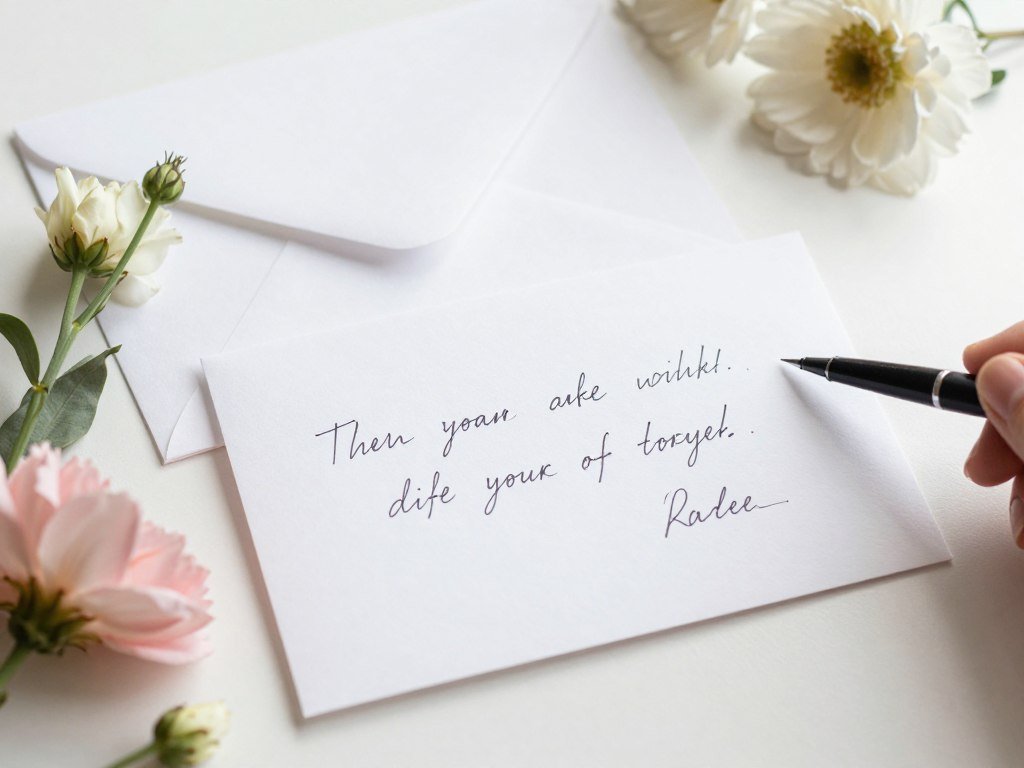 Then yoan anke woihkl..
dife youk of toryel..
Radee